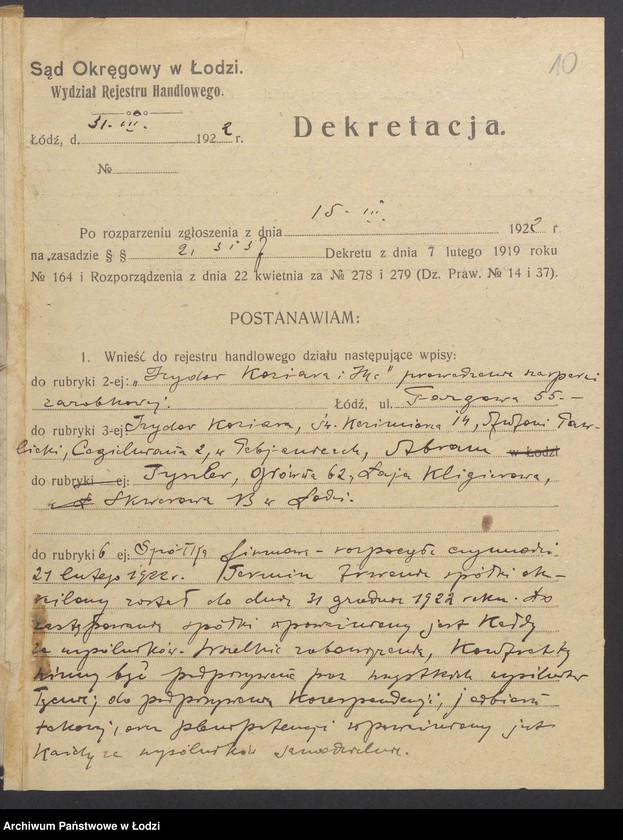 10
Sąd Okręgowy w Łodzi.
Wydział Rejestru Handlowego.
Łódź, d. 31. III. 1922 r.
Dekretacja.
№
Po rozparzeniu zgłoszenia z dnia 15. III. 1922 r
na zasadzie § § 2, 3 i 37 Dekretu z dnia 7 lutego 1919 roku
№ 164 i Rozporządzenia z dnia 22 kwietnia za № 278 i 279 (Dz. Praw. № 14 i 37).
POSTANAWIAM:
1. Wnieść do rejestru handlowego działu następujące wpisy:
do rubryki 2-ej: „Izydor Koziara i S-ka"
zarobkowej. Łódź, ul. Targowa 55.–
do rubryki 3-ej: Izydor Koziara, Św. Kazimierza 14, Antoni Paw-
licki, Cegielniania 2, w Pabjanicach, Abram w Łodzi
do rubryki ej: Tyszler, Główna 62, Łaja Kligierowa,
Skwerowa 13 w Łodzi.
do rubryki 6 ej: Spółka firmowa – rozpoczęła czynności
21 lutego 1922 r. Termin trwania spółki ok-
reślony został do dnia 31 grudnia 1922 roku. Do
zastępowania spółki upoważniony jest każdy
ze wspólników. Wszelkie zobowiązania, kontrakty
winny być podpisywane przez wszystkich wspólników
łącznie; do podpisywania korespondencji, odbioru
takowej, oraz plenipotencji upoważniony jest
każdy ze wspólników samodzielnie.
Archiwum Państwowe w Łodzi